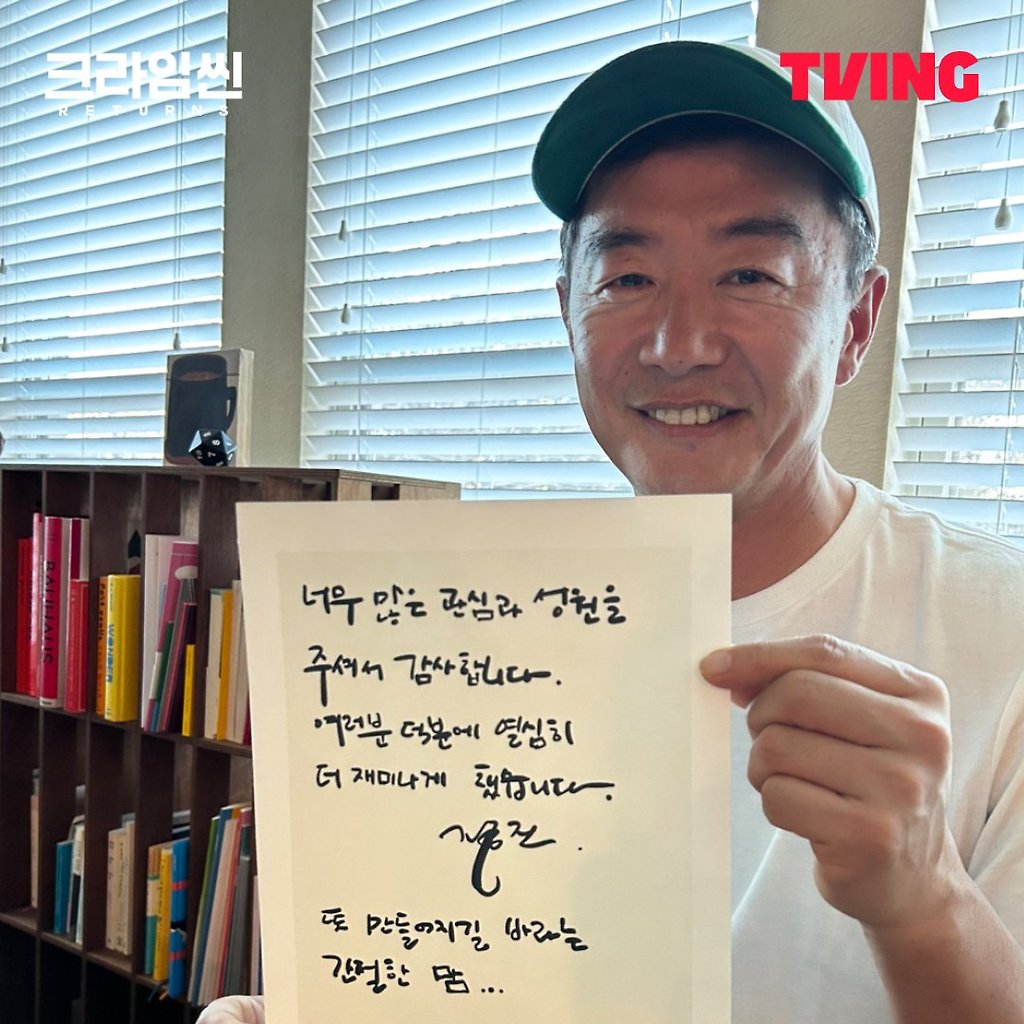 크라임씬
RETURNS
TVING
BAUHAUS
WONDER
너무 많은 관심과 성원을
주셔서 감사합니다.
여러분 덕분에 열심히
더 재미나게 했습니다.
또 만들어지길 바라는
간절한 맘...